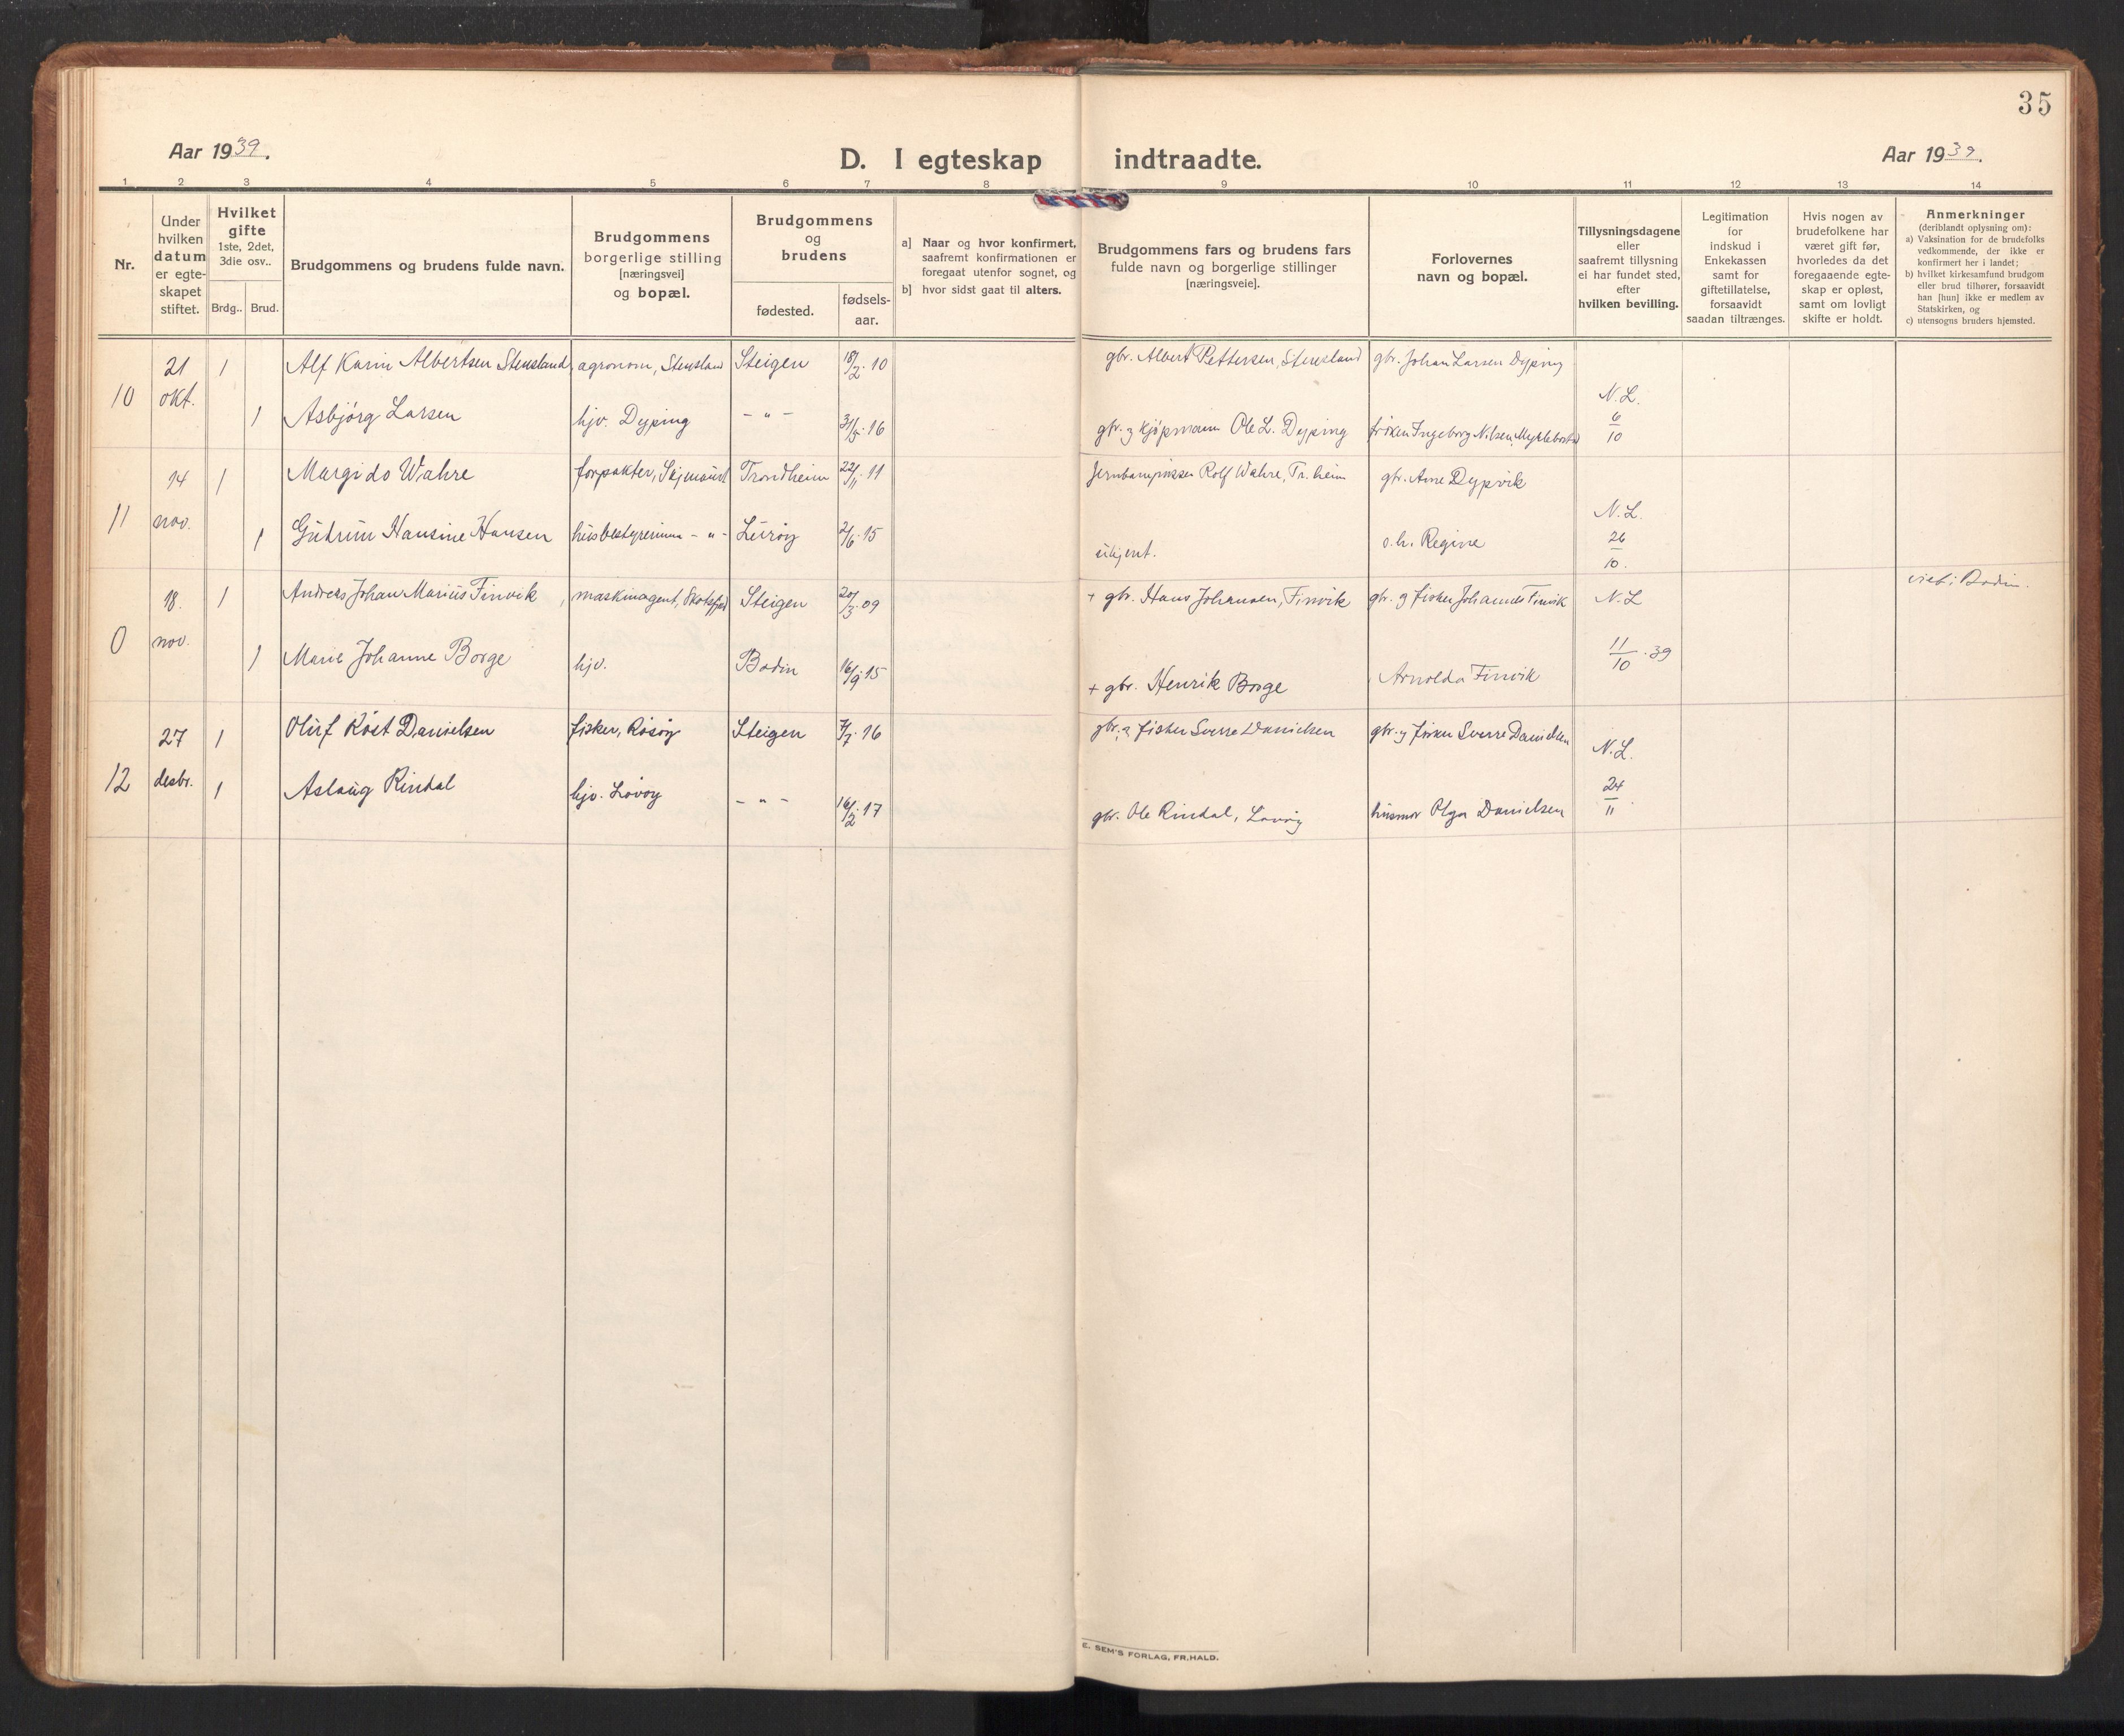 35
Aar 1939.
D. I egteskap indtraadte.
Aar 1939.
1 2 3 4 5 6 7 8 9 10 11 12 13 14
Nr.
Under
hvilken
datum
er egte-
skapet
stiftet.
Hvilket
gifte
1ste, 2det,
3die osv..
Brdg.. Brud.
Brudgommens og brudens fulde navn.
Brudgommens
borgerlige stilling
[næringsvei]
og bopæl.
Brudgommens
og
brudens
fødested.
fødsels-
aar.
a] Naar og hvor konfirmert,
saafremt konfirmationen er
foregaat utenfor sognet, og
b] hvor sidst gaat til alters.
Brudgommens fars og brudens fars
fulde navn og borgerlige stillinger
[næringsveie].
Forlovernes
navn og bopæl.
Tillysningsdagene
eller
saafremt tillysning
ei har fundet sted,
efter
hvilken bevilling.
Legitimation
for
indskud i
Enkekassen
samt for
giftetillatelse,
forsaavidt
saadan tiltrænges.
Hvis nogen av
brudefolkene har
været gift før,
hvorledes da det
foregaaende egte-
skap er opløst,
samt om lovligt
skifte er holdt.
Anmerkninger
(deriblandt oplysning om):
a) Vaksination for de brudefolks
vedkommende, der ikke er
konfirmert her i landet;
b) hvilket kirkesamfund brudgom
eller brud tilhører, forsaavidt
han [hun] ikke er medlem av
Statskirken, og
c) utensogns bruders hjemsted.
10
21 okt.
1 Alf Karin Albertsen Stensland, agronom, Stensland Steigen 18/2. 10 gbr. Albert Pettersen, Stensland gbr. Johan Larsen Dyping
N.L. 6/10
1 Asbjörg Larsen hjv. Dyping - " - 31/5. 16 gbr. og kjöpmann Ole L. Dyping fröken Ingeborg Nilsen, Myklebostad
11
14 nov.
1 Margido Wahre forpakter, Trondheim 22/11. 11 Rolf Wahre, Tr.heim gbr. Arne Dypvik
N.L. 26/10.
1 Gudrun Hansine Hansen husbestyrerinne - " - Luröy 2/6. 15 ubjent. o.h. Regine
0
18. nov.
1 Andreas Johan Marius Finvik, maskinagent, Skotsfjord Steigen 20/3. 09 + gbr. Hans Johansen, Finvik gbr. og fisker Johannes Finvik N.L. viet i Bodin.
11/10. 39
1 Marie Johanne Borge hjv. Bodin 16/9. 15 + gbr. Henrik Borge Arnolda Finvik
12
27 desbr.
1 Oluf Röst Danielsen fisker, Rösöy Steigen 7/7. 16 gbr. og fisker Sverre Danielsen gbr. og fisker Sverre Danielsen
N.L. 24/11.
1 Aslaug Rindal hjv. Lövöy - " - 16/2. 17 gbr. Ole Rindal, Lövöy husmor Olga Danielsen
E. SEM'S FORLAG, FR.HALD.